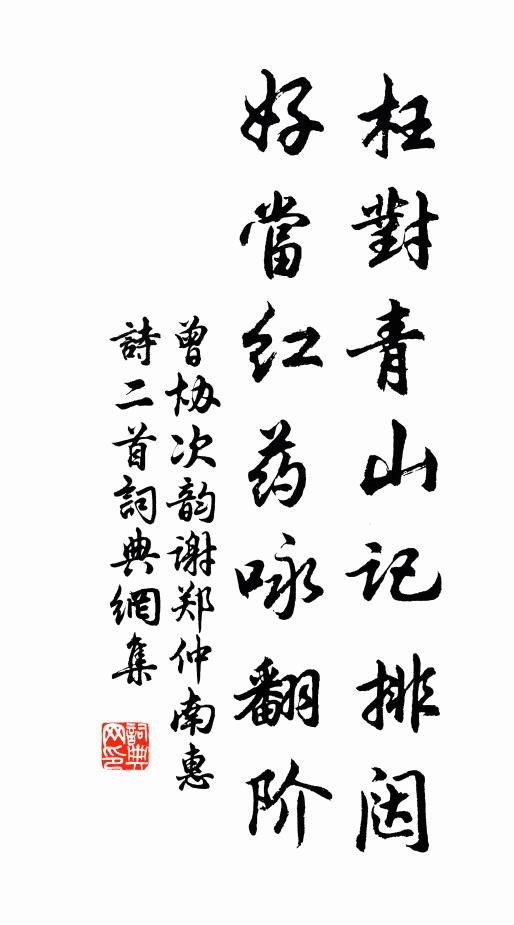 枉對青山记排闼
好當红药咏翻阶
曾协次韵谢郑仲南惠
詩二首詞典網集
詞典网印